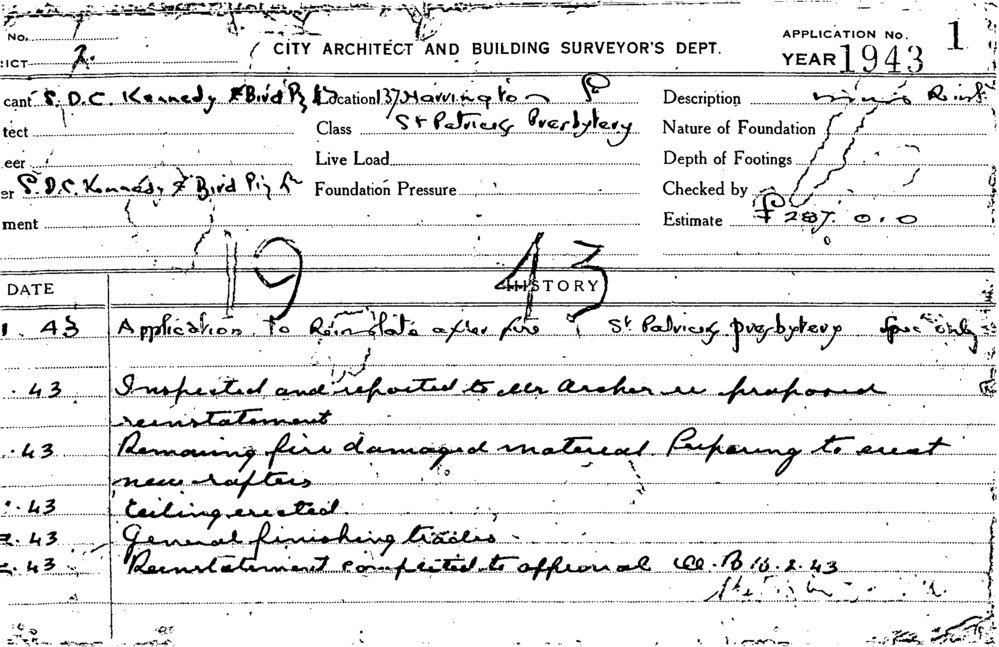 No.
APPLICATION No. 1
ICT 2. CITY ARCHITECT AND BUILDING SURVEYOR'S DEPT. YEAR 1943
cant S. D.C. Kennedy & Bird Location 137 Harrington Description
tect Class St Patricks Presbytery Nature of Foundation
eer Live Load Depth of Footings
er S. D.C. Kennedy & Bird Foundation Pressure Checked by
ment Estimate £287.0.0
1943
DATE HISTORY
1. 43 Application to Reinstate after fire St Patricks presbytery Spec only
. 43 Inspected and reported to Mr Archer re proposed
reinstatement
. 43 Removing fire damaged material. Preparing to erect
new rafters
. 43 Ceiling erected.
2. 43 General finishing trades.
2. 43 Reinstatement completed to approval 16.2.43